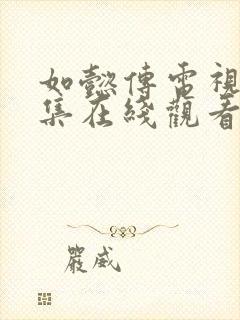 如懿傳電視
集在綫觀看
嚴威